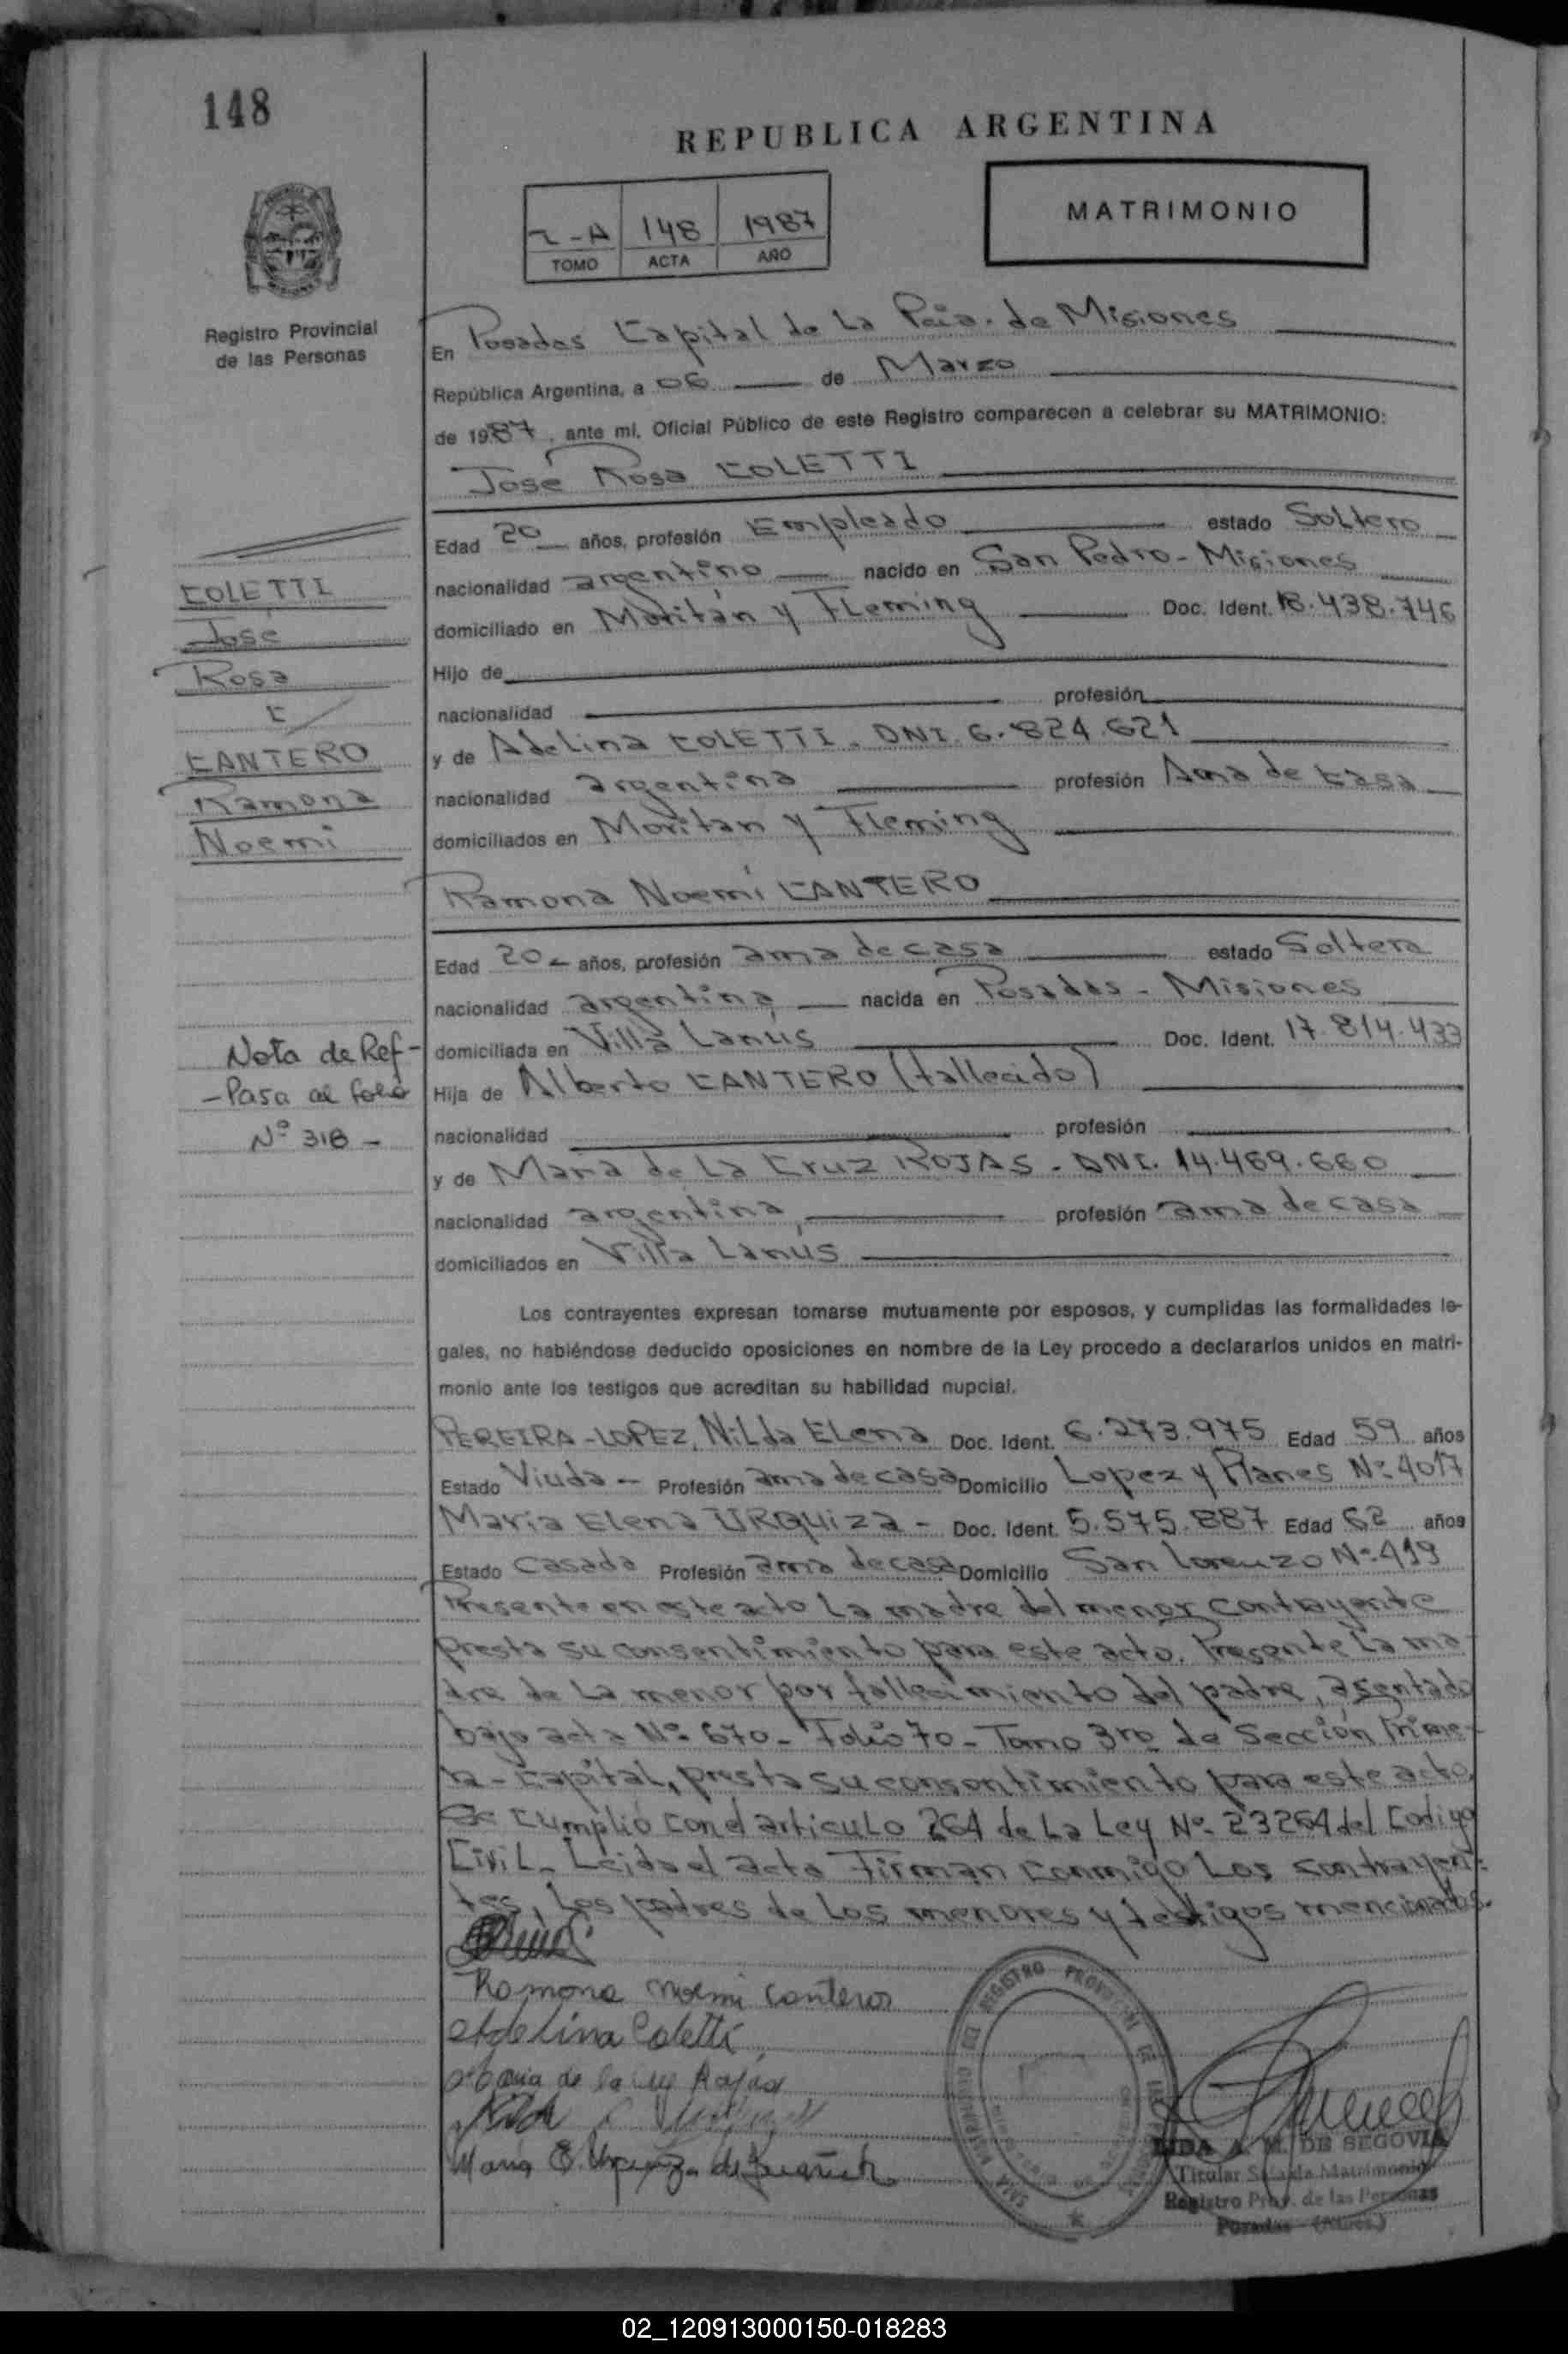 148
REPUBLICA ARGENTINA
MATRIMONIO
1-A 148 1987
TOMO ACTA AÑO
Registro Provincial
de las Personas
En Posadas Capital de La Pcia. de Misiones
República Argentina, a 06 de Marzo
de 1987, ante mí, Oficial Público de este Registro comparecen a celebrar su MATRIMONIO:
José Rosa COLETTI
Edad 20 años, profesión Empleado estado Soltero
nacionalidad argentino nacido en San Pedro - Misiones
domiciliado en Moritán y Fleming Doc. Ident. 18.438.746
Hijo de
nacionalidad profesión
y de Adelina COLETTI. DNI. 6.824.621
nacionalidad argentina profesión Ama de casa
domiciliados en Moritan y Fleming
Ramona Noemí CANTERO
Edad 20 años, profesión ama de casa estado Soltera
nacionalidad argentina nacida en Posadas - Misiones
domiciliada en Villa Lanús Doc. Ident. 17.814.433
Hija de Alberto CANTERO (fallecido)
nacionalidad profesión
y de María de La Cruz ROJAS - DNI. 14.469.660
nacionalidad argentina, profesión ama de casa
domiciliados en Villa Lanús
COLETTI
José
Rosa
c/
CANTERO
Ramona
Noemi
Nota de Ref-
-Pasa al folio
Nº 318 -
Los contrayentes expresan tomarse mutuamente por esposos, y cumplidas las formalidades le-
gales, no habiéndose deducido oposiciones en nombre de la Ley procedo a declararlos unidos en matri-
monio ante los testigos que acreditan su habilidad nupcial.
PEREIRA-LOPEZ, Nilda Elena Doc. Ident. 6.273.975 Edad 59 años
Estado Viuda - Profesión ama de casa Domicilio Lopez y Planes Nº 4017
María Elena URQUIZA - Doc. Ident. 5.575.887 Edad 62 años
Estado Casada Profesión ama de casa Domicilio San Lorenzo Nº 419
Presente en este acto La madre del menor contrayente
presta su consentimiento para este acto. Presente La ma-
dre de La menor por fallecimiento del padre, asentado
bajo acta Nº 670 - Folio 70 - Tomo 3ro de Sección Prime-
ra - Capital, presta su consentimiento para este acto.
Se cumplió con el artículo 264 de La Ley Nº 23264 del Codigo
Civil. Leida el acta Firman conmigo Los contrayen-
tes, Los padres de Los menores y testigos mencionados.
Ramona Noemi Cantero
Adelina Coletti
Maria de la Cruz Rojas
Nilda
María E. Urquiza de
REGISTRO PROVINCIAL DE LAS PERSONAS
SALA MATRIMONIOS
LIDA A. M. DE SEGOVIA
Titular Sala de Matrimonio
Registro Prov. de las Personas
Posadas - (Mnes.)
02_120913000150-018283